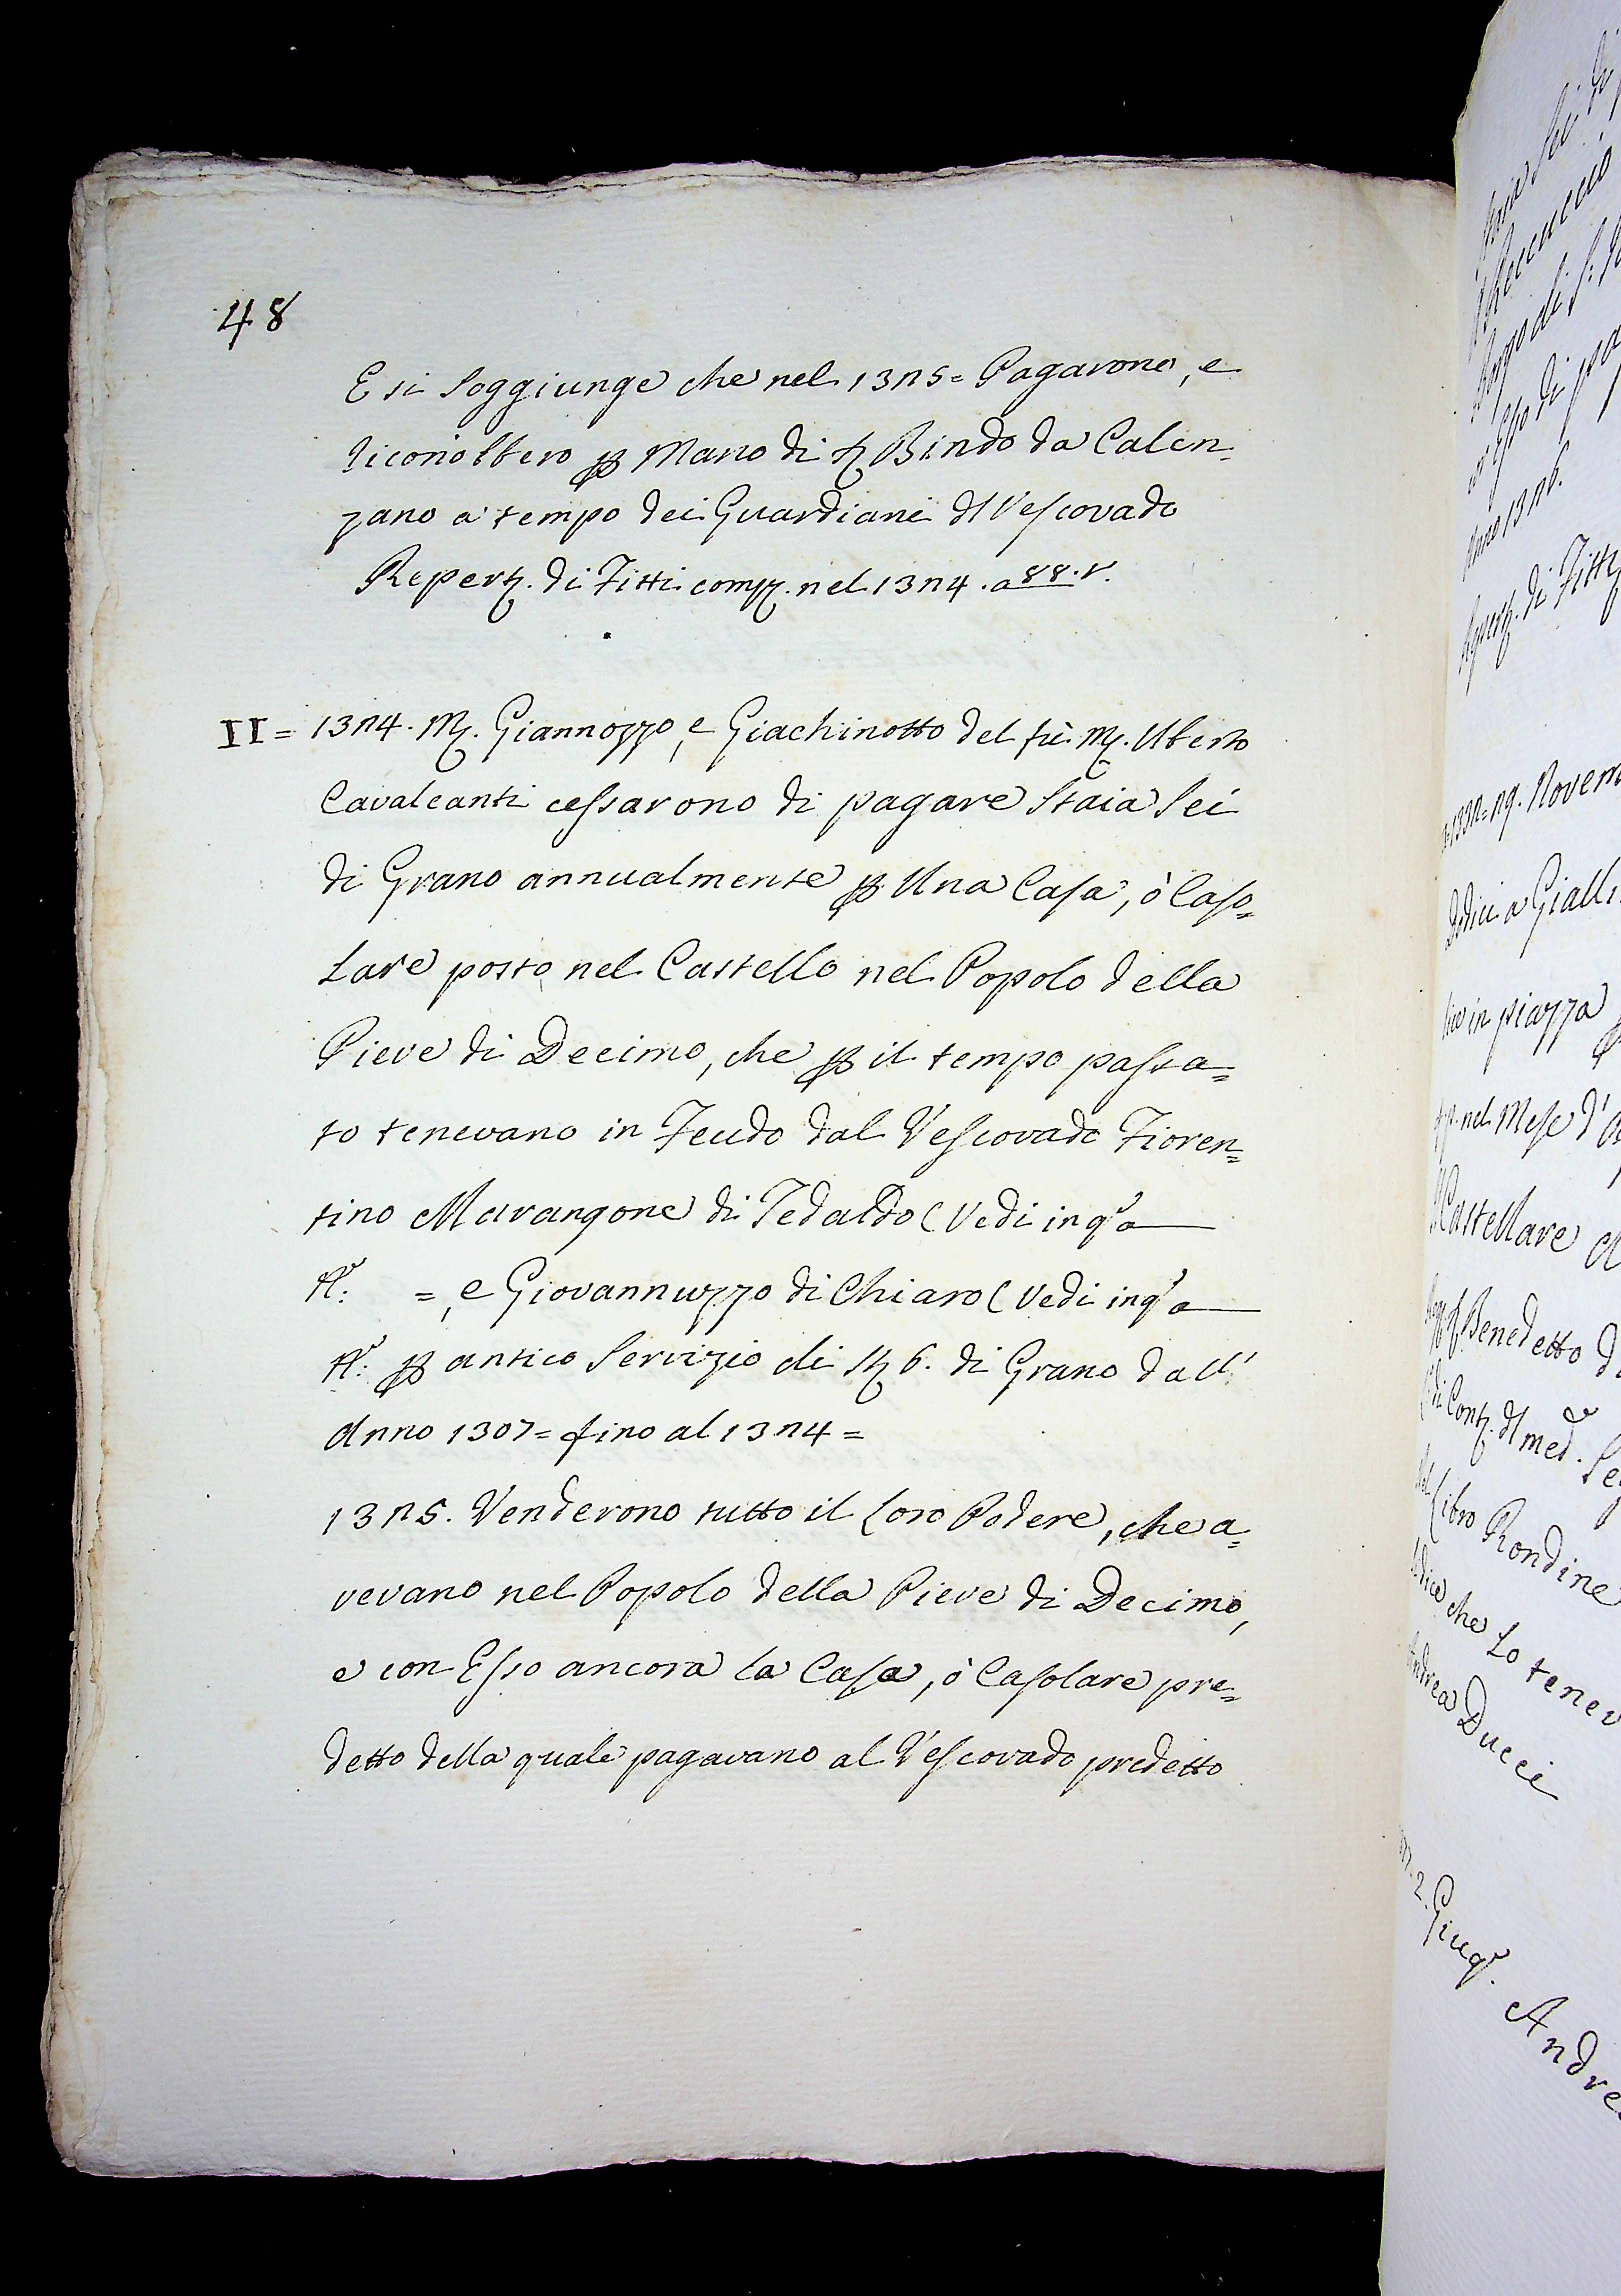 48
E si Soggiunge che nel 1325= Pagarono, e
riconobbero p Mano di S. Bindo da Calen=
zano a tempo dei Guardiani dl Vescovado
Repert. di Fitti comp. nel 1324. a 88. v.
II = 1324. M. Giannozzo, e Giachinotto del fù M. Uberto
Cavalcanti cessarono di pagare Staia Sei
di Grano annualmente p Una Casa, ò Caso=
lare posto nel Castello nel Popolo della
Pieve di Decimo, che p il tempo passa=
to tenevano in Feudo dal Vescovado Fioren=
tino Marangone di Tedaldo (Vedi in qº a
Nº: =, e Giovannuzzo di Chiaro (Vedi in qº a
Nº: p antico Servizio di St 6. di Grano dall'
Anno 1307= fino al 1324=
1325. Venderono tutto il loro Podere, che a=
vevano nel Popolo della Pieve di Decimo,
e con Esso ancora la Casa, ò Casolare pre=
detto della quale pagavano al Vescovado predetto
Anno 1326.
Repert. di Fitti
1332= 29. Novem
Dodici a Gialli
in piazza
nel Mese d'
Castellare
Benedetto
di Cont. dl med.
Libro Rondine
che lo tenev
Andrea Ducci
2. Giugº. Andre